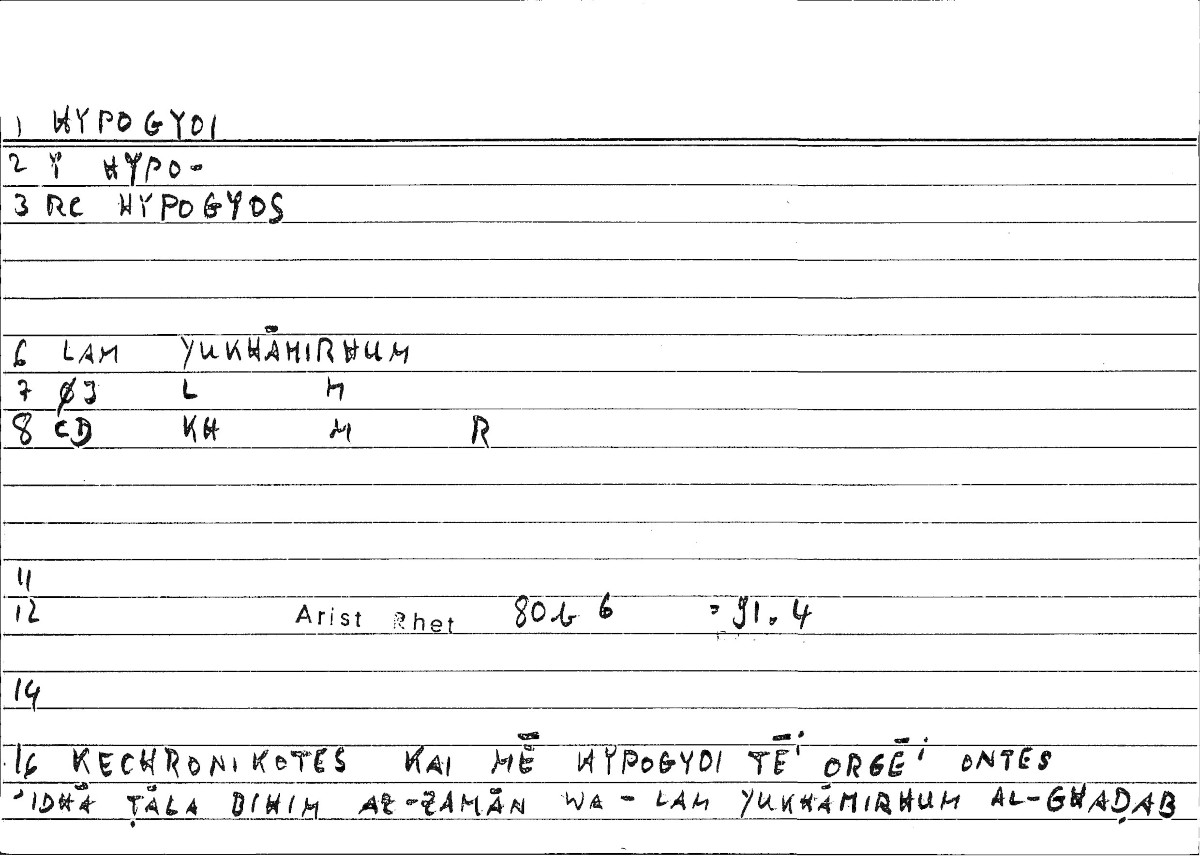 1 HYPOGYOI
2 Y HYPO-
3 RC HYPOGYOS
6 LAM YUKHĀMIRHUM
7 ØJ L M
8 CD KH M R
11
12 Arist Rhet 80b 6 = 91.4
14
16 KECHRONIKOTES KAI MĒ HYPOGYOI TĒⁱ ORGĒⁱ ONTES
'IDHĀ ṬĀLA BIHIM AZ-ZAMĀN WA-LAM YUKHĀMIRHUM AL-GHAḌAB